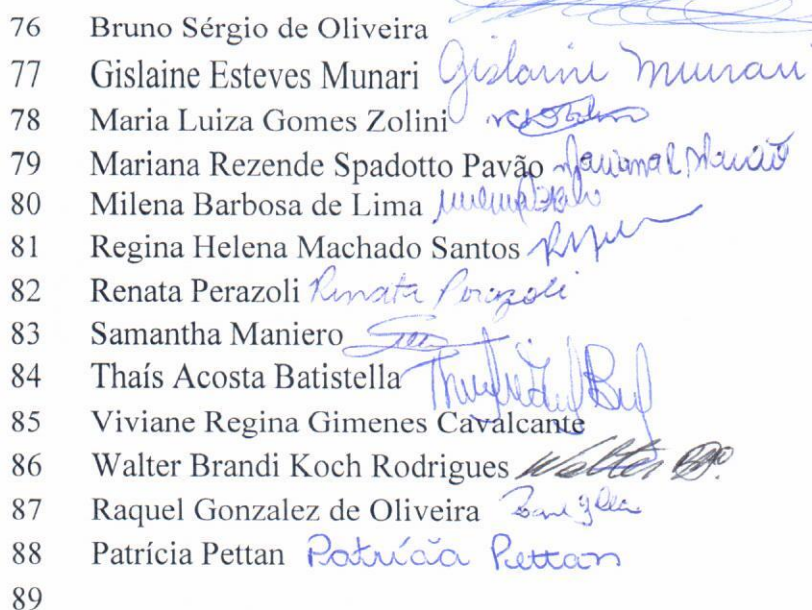 76 Bruno Sérgio de Oliveira
77 Gislaine Esteves Munari Gislaine Munari
78 Maria Luiza Gomes Zolini
79 Mariana Rezende Spadotto Pavão
80 Milena Barbosa de Lima
81 Regina Helena Machado Santos
82 Renata Perazoli Renata Perazoli
83 Samantha Maniero
84 Thaís Acosta Batistella
85 Viviane Regina Gimenes Cavalcante
86 Walter Brandi Koch Rodrigues Walter
87 Raquel Gonzalez de Oliveira
88 Patrícia Pettan Patrícia Pettan
89